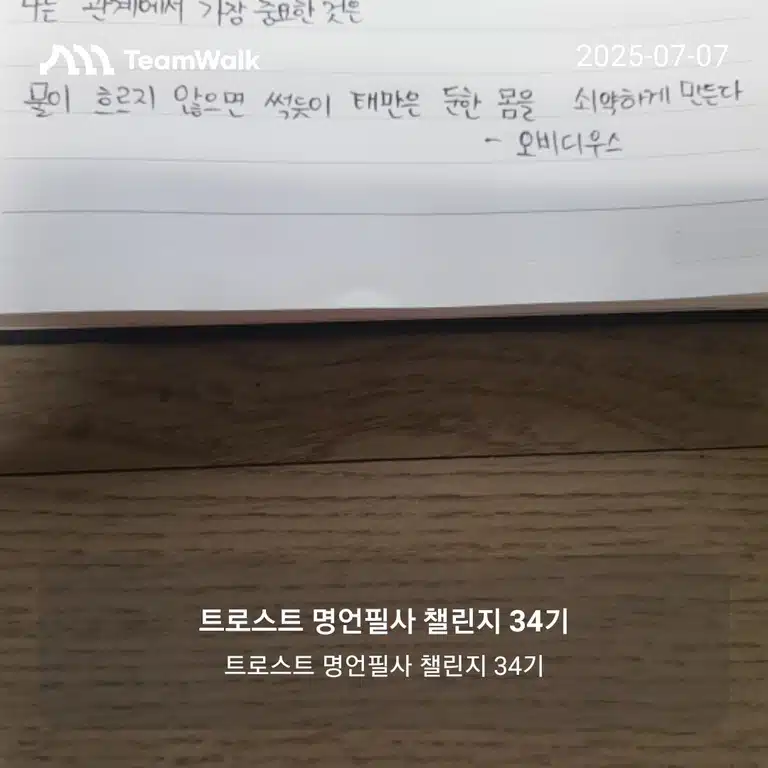 나는 관계에서 가장 중요한 것은
TeamWalk
2025-07-07
물이 흐르지 않으면 썩듯이 태만은 둔한 몸을 쇠약하게 만든다
- 오비디우스
트로스트 명언필사 챌린지 34기
트로스트 명언필사 챌린지 34기